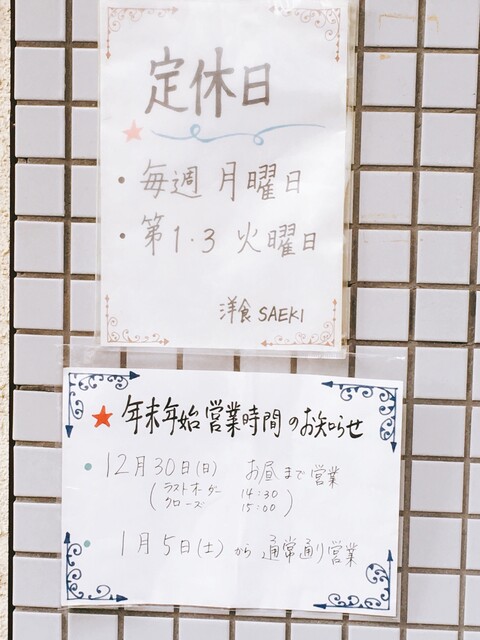 定休日
・毎週 月曜日
・第1.3 火曜日
洋食 SAEKI
★年末年始営業時間のお知らせ
・12月30日(日) お昼まで営業
(ラストオーダー 14:30
クローズ 15:00)
・1月5日(土)から通常通り営業